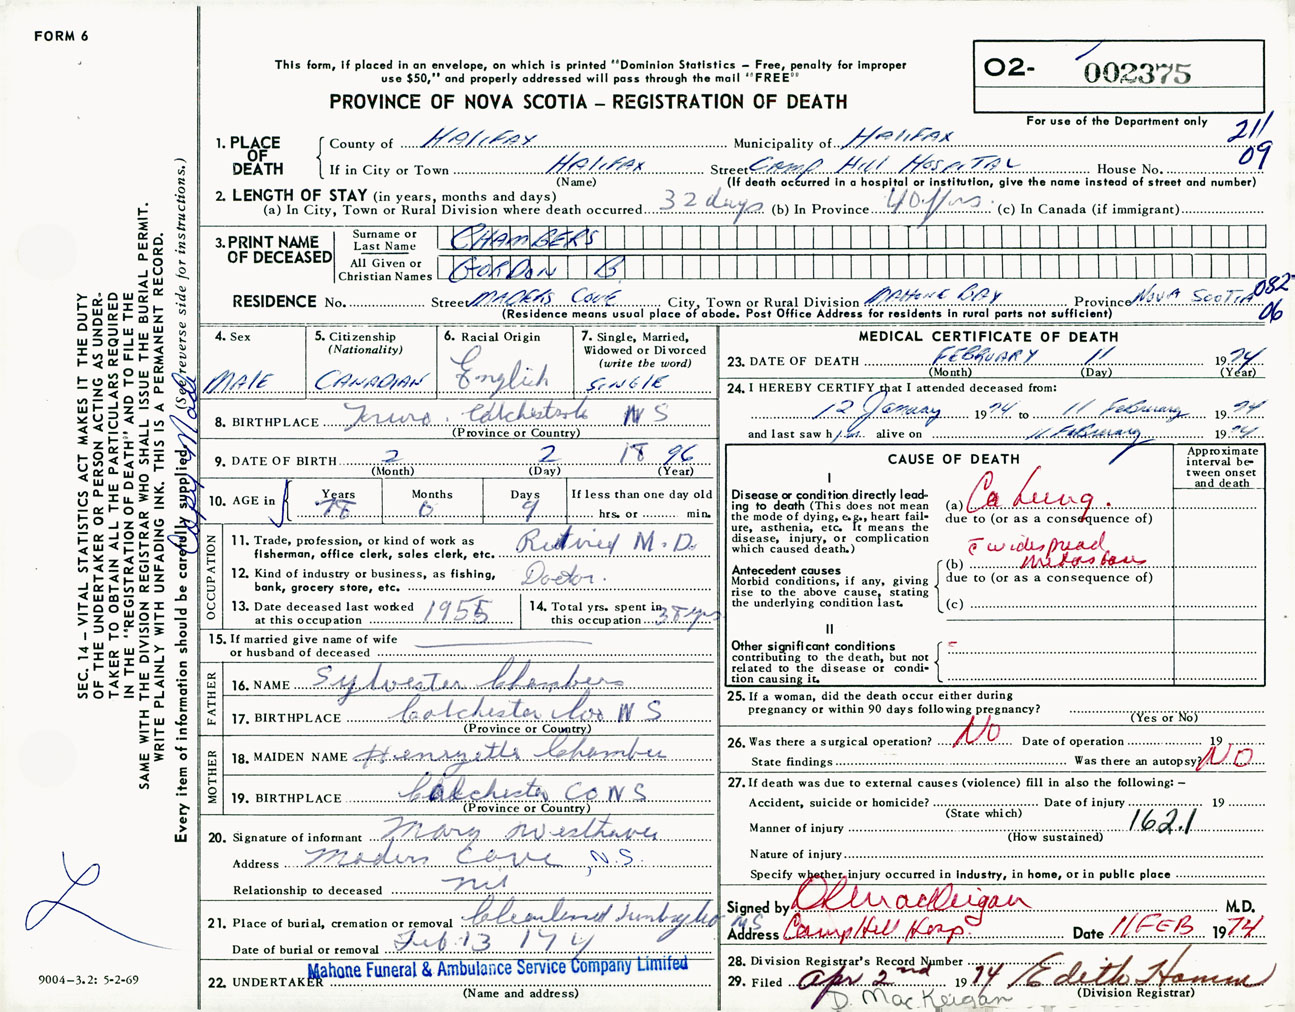 FORM 6
This form, if placed in an envelope, on which is printed "Dominion Statistics – Free, penalty for improper
use $50," and properly addressed will pass through the mail "FREE"
PROVINCE OF NOVA SCOTIA – REGISTRATION OF DEATH
O2- 002375
For use of the Department only
211
09
1. PLACE OF DEATH
County of HALIFAX Municipality of HALIFAX
If in City or Town HALIFAX Street CAMP HILL HOSPITAL House No.
(Name) (If death occurred in a hospital or institution, give the name instead of street and number)
2. LENGTH OF STAY (in years, months and days)
(a) In City, Town or Rural Division where death occurred 32 days (b) In Province 40 yrs. (c) In Canada (if immigrant)
3. PRINT NAME OF DECEASED
Surname or Last Name CHAMBERS
All Given or Christian Names GORDON B.
RESIDENCE No. Street MADERS COVE City, Town or Rural Division MAHONE BAY Province NOVA SCOTIA
082
06
(Residence means usual place of abode. Post Office Address for residents in rural parts not sufficient)
4. Sex MALE
5. Citizenship (Nationality) CANADIAN
6. Racial Origin English
7. Single, Married, Widowed or Divorced (write the word) SINGLE
8. BIRTHPLACE Truro, Colchester NS
(Province or Country)
9. DATE OF BIRTH 2 2 1896
(Month) (Day) (Year)
10. AGE in Years 78 Months 0 Days 9 If less than one day old
hrs. or min.
OCCUPATION
11. Trade, profession, or kind of work as
fisherman, office clerk, sales clerk, etc. Retired M.D.
12. Kind of industry or business, as fishing,
bank, grocery store, etc. Doctor.
13. Date deceased last worked
at this occupation 1955
14. Total yrs. spent in
this occupation 38 yrs
15. If married give name of wife
or husband of deceased
FATHER
16. NAME Sylvester Chambers
17. BIRTHPLACE Colchester Co NS
(Province or Country)
MOTHER
18. MAIDEN NAME Henryetta Chambers
19. BIRTHPLACE Colchester CO NS
(Province or Country)
20. Signature of informant Mary Westhaver
Address Maders Cove, N.S.
Relationship to deceased nil
21. Place of burial, cremation or removal
Date of burial or removal Feb. 13 1974
22. UNDERTAKER Mahone Funeral & Ambulance Service Company Limited
(Name and address)
MEDICAL CERTIFICATE OF DEATH
23. DATE OF DEATH FEBRUARY 11 1974
(Month) (Day) (Year)
24. I HEREBY CERTIFY that I attended deceased from:
12 January 1974 to 11 February 1974
and last saw him alive on 11 February 1974
CAUSE OF DEATH
Approximate interval between onset and death
I
Disease or condition directly leading to death (This does not mean the mode of dying, e.g., heart failure, asthenia, etc. It means the disease, injury, or complication which caused death.)
(a) Ca Lung.
due to (or as a consequence of)
(b) c̄ widespread metastases
due to (or as a consequence of)
(c)
Antecedent causes
Morbid conditions, if any, giving
rise to the above cause, stating
the underlying condition last.
II
Other significant conditions
contributing to the death, but not
related to the disease or condition causing it.
25. If a woman, did the death occur either during
pregnancy or within 90 days following pregnancy?
(Yes or No)
26. Was there a surgical operation? No Date of operation 19
State findings Was there an autopsy? NO
27. If death was due to external causes (violence) fill in also the following: –
Accident, suicide or homicide? Date of injury 19
(State which)
Manner of injury 162.1
(How sustained)
Nature of injury
Specify whether injury occurred in industry, in home, or in public place
Signed by D L MacKeigan M.D.
Address Camp Hill Hosp. Date 11 FEB 1974
28. Division Registrar's Record Number
29. Filed Apr 2nd 1974 Edith Hamm
(Division Registrar)
D. MacKeigan
SEC. 14 – VITAL STATISTICS ACT MAKES IT THE DUTY
OF THE UNDERTAKER OR PERSON ACTING AS UNDER-
TAKER TO OBTAIN ALL THE PARTICULARS REQUIRED
IN THE "REGISTRATION OF DEATH" AND TO FILE THE
SAME WITH THE DIVISION REGISTRAR WHO SHALL ISSUE THE BURIAL PERMIT.
WRITE PLAINLY WITH UNFADING INK. THIS IS A PERMANENT RECORD.
Every item of information should be carefully supplied. (See reverse side for instructions.)
Copy Made
9004–3.2: 5-2-69